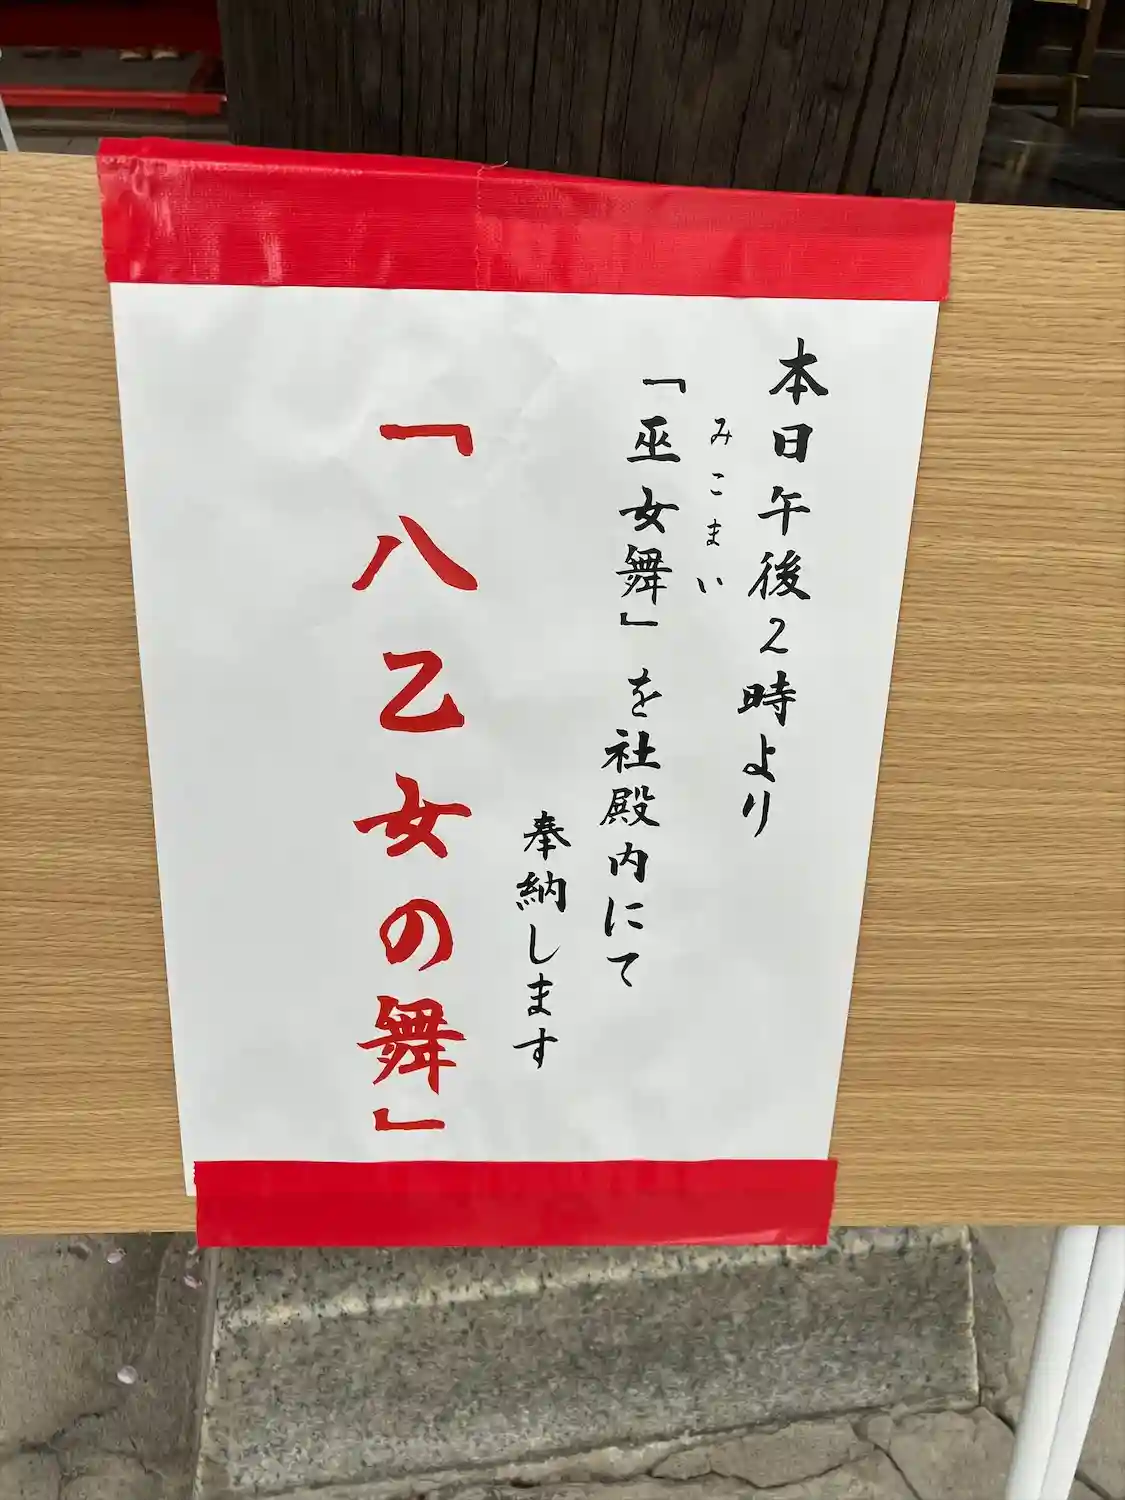 本日午後2時より
みこまい
「巫女舞」を社殿内にて
奉納します
「八乙女の舞」